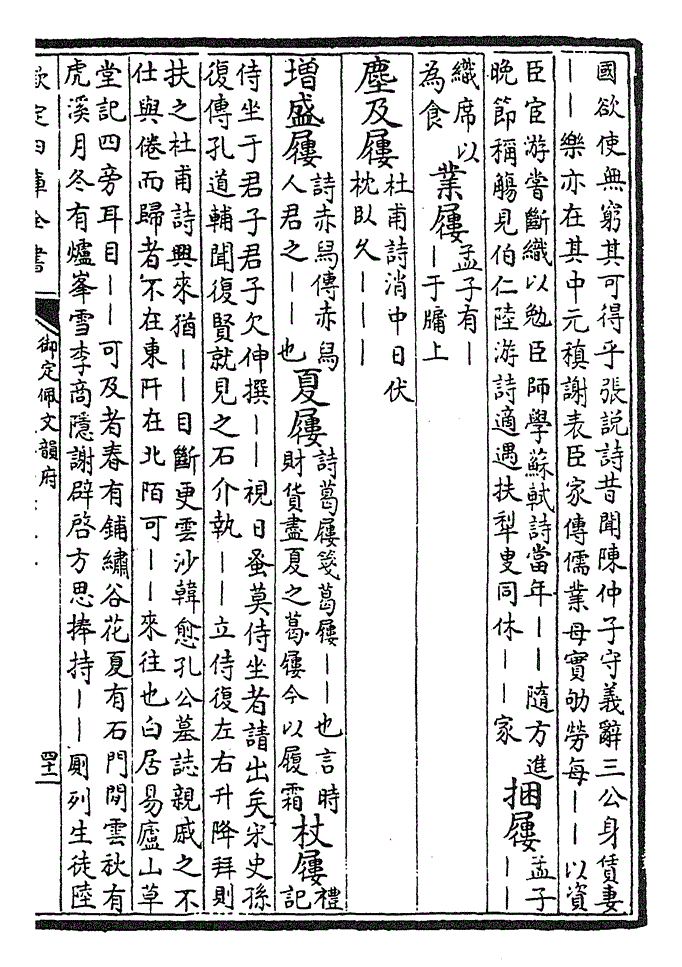 國欲使無窮其可得乎張說詩昔聞陳仲子守義辭三公身賃妻
——樂亦在其中元稹謝表臣家傳儒業母實劬勞每——以資
臣宦游嘗斷織以勉臣師學蘇軾詩當年——隨方進
晚節稱觴見伯仁陸游詩適遇扶犁叟同休——家
捆屨
孟子
——
織席以
為食
業屨
孟子有—
—于牗上
塵及屨
杜甫詩消中日伏
枕臥久———
增盛屨
詩赤舄傳赤舄
人君之——也
夏屨
詩葛屨箋葛屨——也言時
財貨盡夏之葛屨今以履霜
杖屨
禮
記
侍坐于君子君子欠伸撰——視日蚤莫侍坐者請出矣宋史孫
復傳孔道輔聞復賢就見之石介執——立侍復左右升降拜則
扶之杜甫詩興來猶——目斷更雲沙韓愈孔公墓誌親戚之不
仕與倦而歸者不在東阡在北陌可——來往也白居易廬山草
堂記四旁耳目——可及者春有鋪繡谷花夏有石門閒雲秋有
虎溪月冬有爐峯雪李商隱謝辟啓方思捧持——厠列生徒陸
欽定四庫全書
御定佩文韻府
四十二